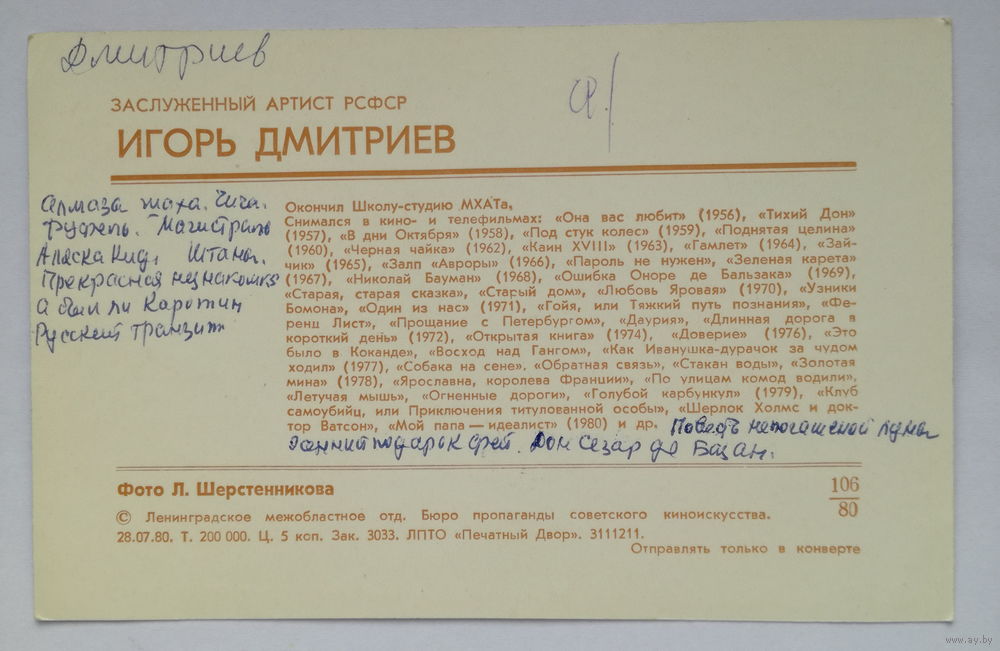 Дмитриев
ЗАСЛУЖЕННЫЙ АРТИСТ РСФСР
ИГОРЬ ДМИТРИЕВ
Алмазы шаха. Чича.
Труфель. Магистраль
Аляска Кид. Штаны.
Прекрасная незнакомка
А был ли Каротин
Русский транзит
Окончил Школу-студию МХАТа,
Снимался в кино- и телефильмах: «Она вас любит» (1956), «Тихий Дон»
(1957), «В дни Октября» (1958), «Под стук колес» (1959), «Поднятая целина»
(1960), «Черная чайка» (1962), «Каин XVIII» (1963), «Гамлет» (1964), «Зай-
чик» (1965), «Залп «Авроры» (1966), «Пароль не нужен», «Зеленая карета»
(1967), «Николай Бауман» (1968), «Ошибка Оноре де Бальзака» (1969),
«Старая, старая сказка», «Старый дом», «Любовь Яровая» (1970), «Узники
Бомона», «Один из нас» (1971), «Гойя, или Тяжкий путь познания», «Фе-
ренц Лист», «Прощание с Петербургом», «Даурия», «Длинная дорога в
короткий день» (1972), «Открытая книга» (1974), «Доверие» (1976), «Это
было в Коканде», «Восход над Гангом», «Как Иванушка-дурачок за чудом
ходил» (1977), «Собака на сене». «Обратная связь», «Стакан воды», «Золотая
мина» (1978), «Ярославна, королева Франции», «По улицам комод водили»,
«Летучая мышь», «Огненные дороги», «Голубой карбункул» (1979), «Клуб
самоубийц, или Приключения титулованной особы», «Шерлок Холмс и док-
тор Ватсон», «Мой папа — идеалист» (1980) и др. Повесть непогашеной луны
подарок фей. Дон Сезар де Базан.
Фото Л. Шерстенникова
106
80
© Ленинградское межобластное отд. Бюро пропаганды советского киноискусства.
28.07.80. Т. 200 000. Ц. 5 коп. Зак. 3033. ЛПТО «Печатный Двор». 3111211.
Отправлять только в конверте
www.ay.by